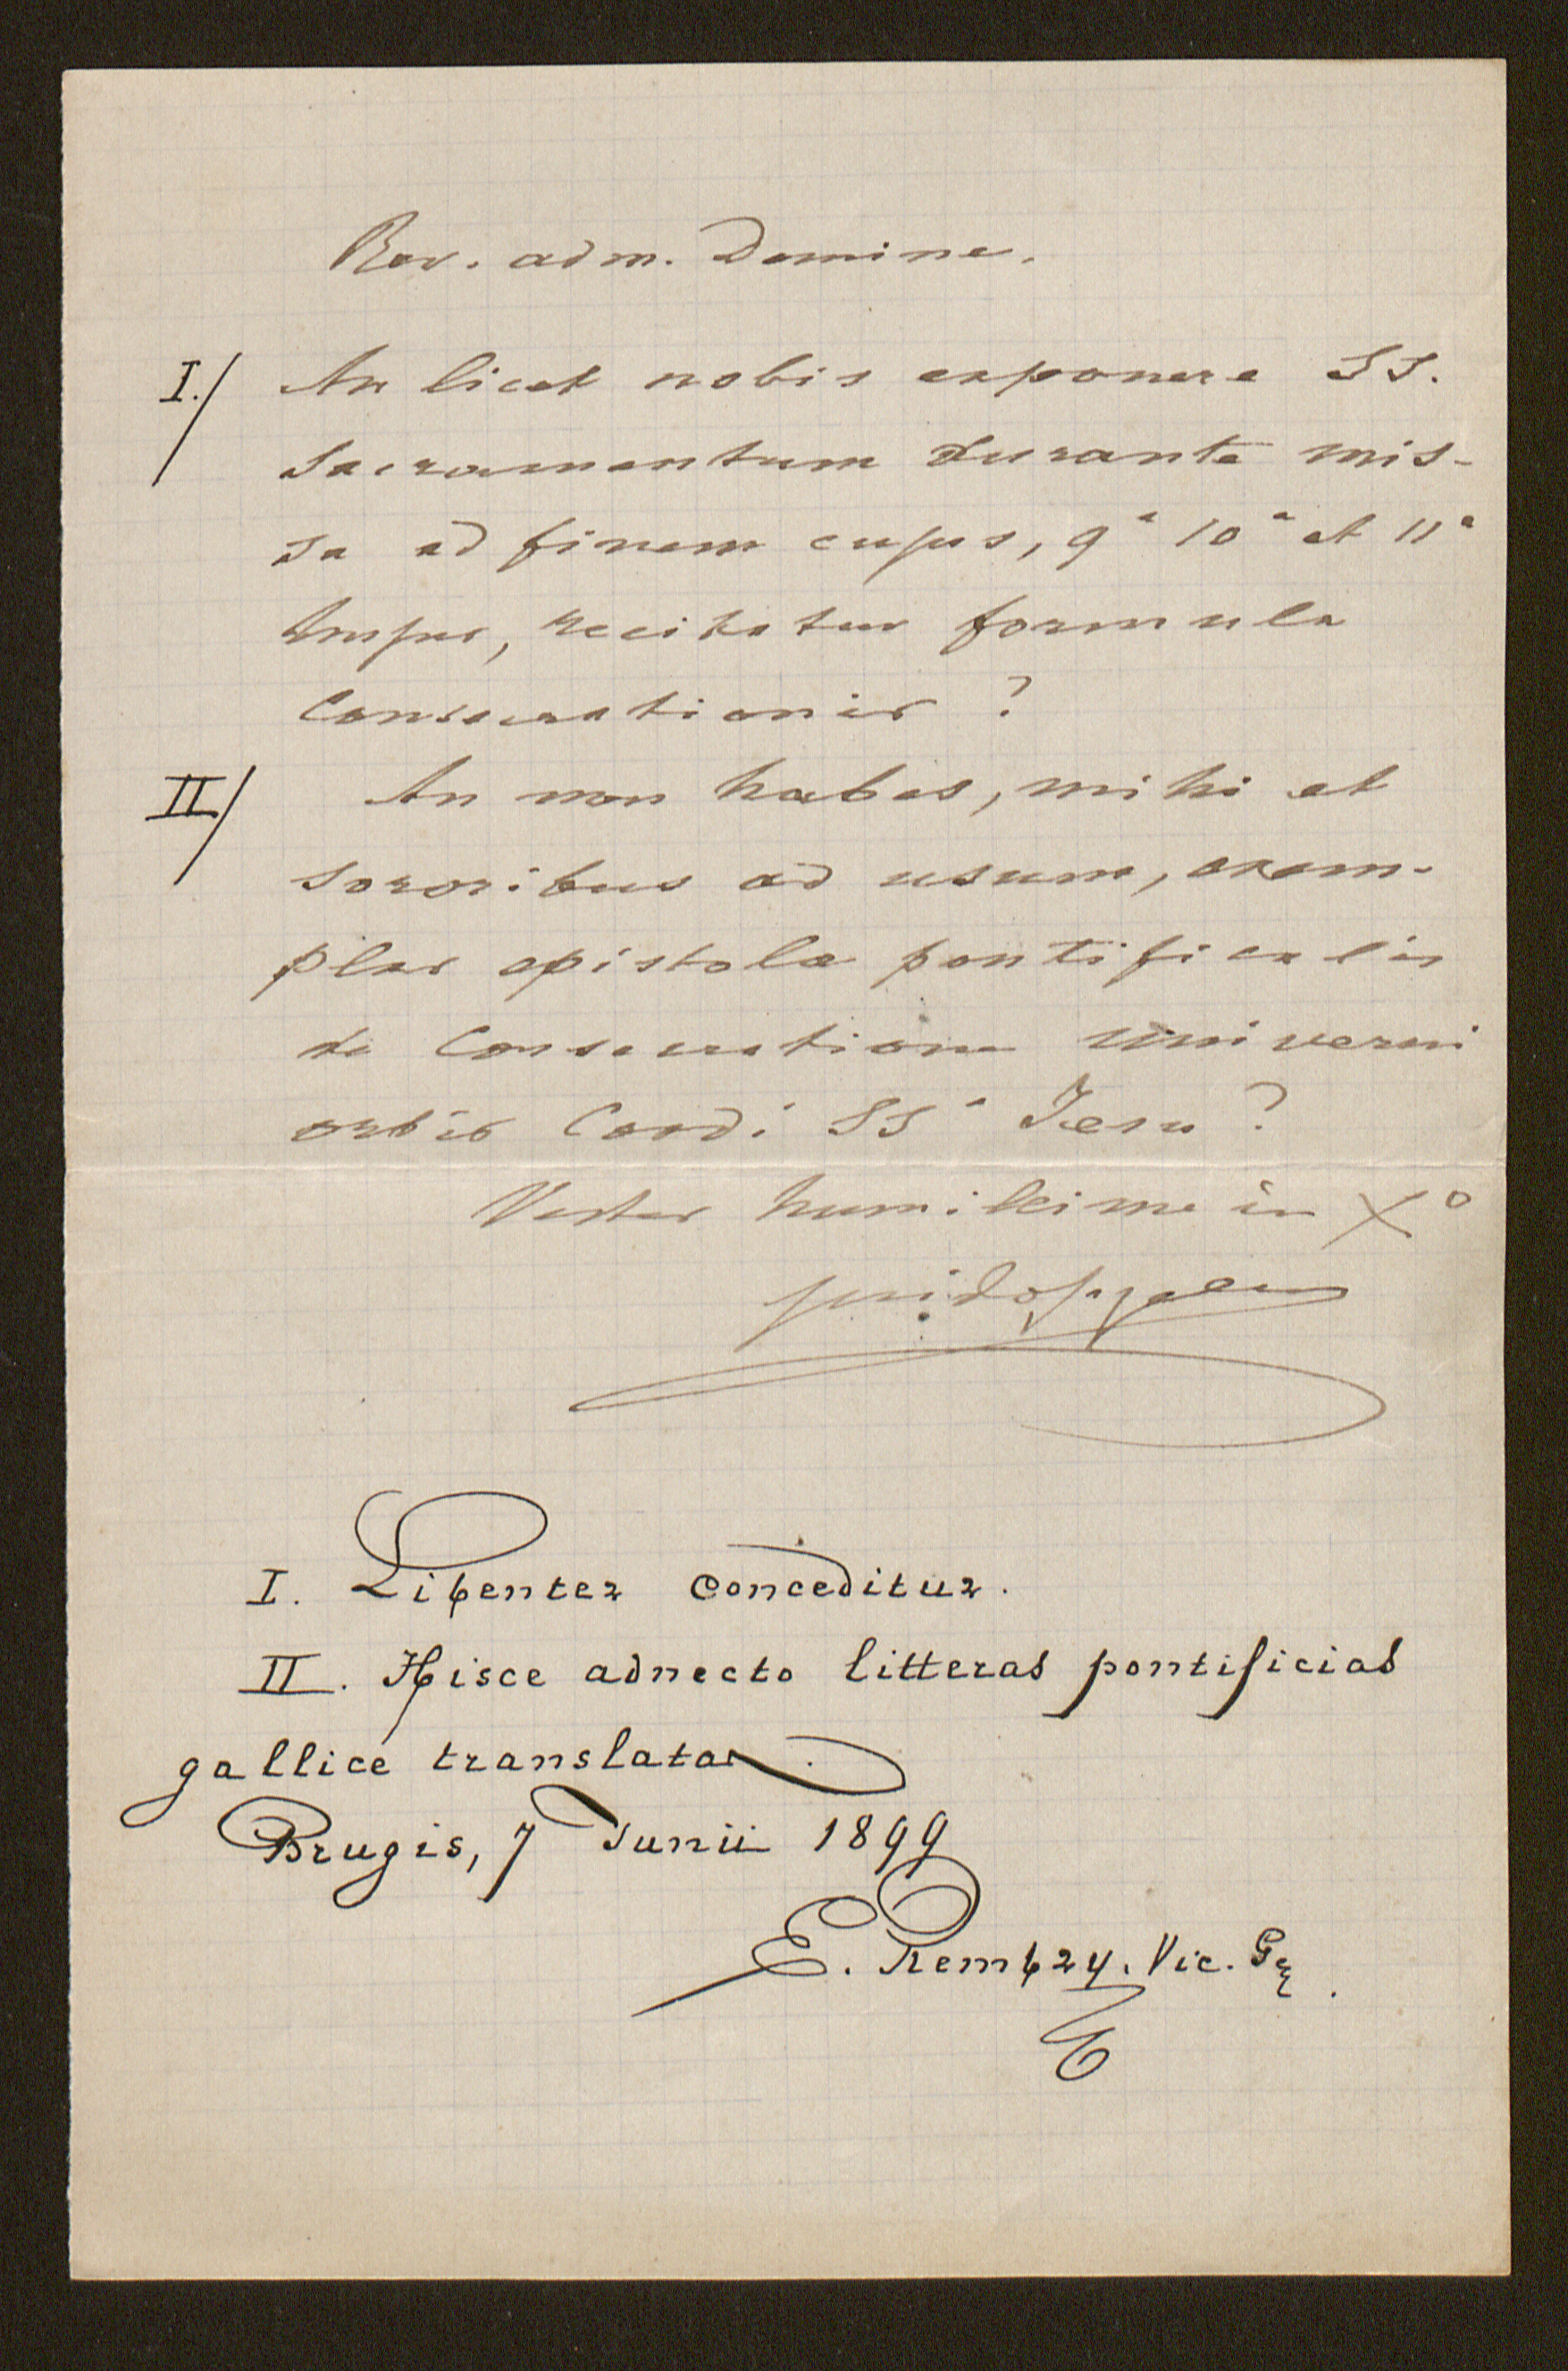 Rev. adm. Domine.
I./ An licet nobis exponere SS.
Sacramentum durante mis-
sa ad finem cujus, 9ª 10ª et 11ª
hujus, recitatur formula
Consecrationis ?
II/ An non habes, mihi et
sororibus ad usum, exem-
plar epistolæ pontificalis
de Consecratione universi
orbis Cordi SSº Jesu ?
Vester humillime in Xº
guidogezelle
I. Libenter conceditur.
II. Hisce adnecto litteras pontificias
gallicè translatas.
Brugis, 7 Junii 1899
E. Rembry. Vic. G.